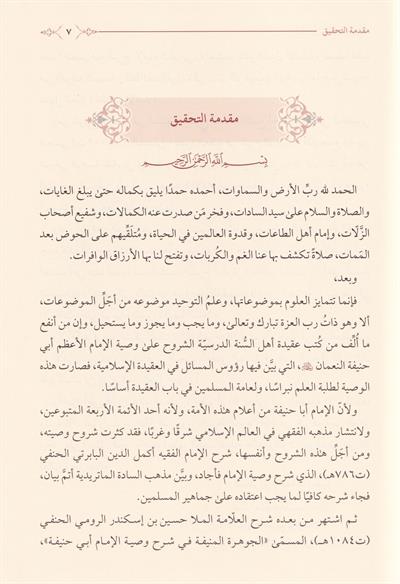 مقدمة التحقيق
٧
مقدمة التحقيق
بِسْمِ اللهِ الرَّحْمٰنِ الرَّحِيمِ
الحمد لله ربِّ الأرض والسماوات، أحمده حمدًا يليق بكماله حتىٰ يبلغ الغايات،
والصلاة والسلام علىٰ سيد السادات، وفخر مَن صدرت عنه الكمالات، وشفيع أصحاب
الزَّلَّات، وإمام أهل الطاعات، وقدوة العالمين في الحياة، ومُتلَقِّيهم على الحوض بعد
المَمات، صلاةً تكشف بها عنا الغم والكُربات، وتفتح لنا بها الأرزاق الوافرات.
وبعد،
فإنما تتمايز العلوم بموضوعاتها، وعلمُ التوحيد موضوعه من أجَلِّ الموضوعات،
ألا وهو ذاتُ رب العزة تبارك وتعالىٰ، وما يجب وما يجوز وما يستحيل، وإن من أنفع
ما أُلِّف من كُتب عقيدة أهل السُّنة الدرسيّة الشروح علىٰ وصية الإمام الأعظم أبي
حنيفة النعمان، التي بيَّن فيها رؤوس المسائل في العقيدة الإسلامية، فصارت هذه
الوصية لطلبة العلم نبراسًا، ولعامة المسلمين في باب العقيدة أساسًا.
ولأنّ الإمام أبا حنيفة من أعلام هذه الأمة، ولأنه أحد الأئمة الأربعة المتبوعين،
ولانتشار مذهبه الفقهي في العالم الإسلامي شرقًا وغربًا، فقد كثرت شروح وصيته،
ومن أجَلِّ هذه الشروح وأنفسها، شرح الإمام الفقيه أكمل الدين البابرتي الحنفي
(ت٧٨٦هـ)، الذي شرح وصية الإمام فأجاد، وبيَّن مذهب السادة الماتريدية أتمَّ بيان،
فجاء شرحه كافيًا لما يجب اعتقاده علىٰ جماهير المسلمين.
ثم اشتهر من بعده شرح العلّامة الملا حسين بن إسكندر الرومي الحنفي
(ت١٠٨٤هـ)، المسمّىٰ «الجوهرة المنيفة في شرح وصية الإمام أبي حنيفة»،